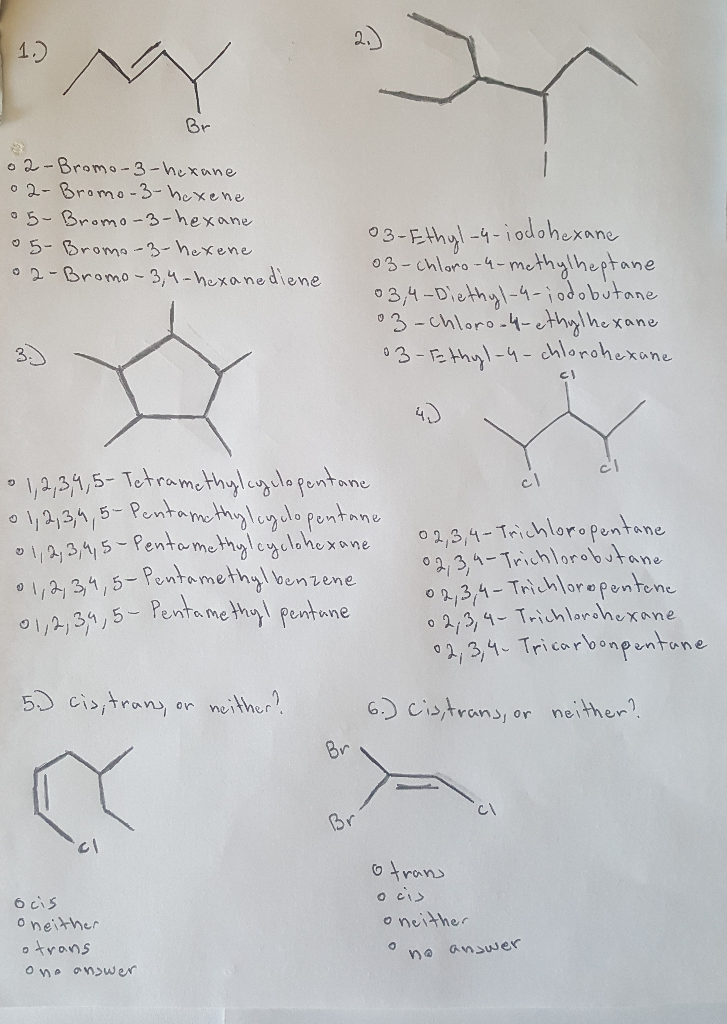 1.)
Br
o 2-Bromo-3-hexane
o 2-Bromo-3-hexene
o 5-Bromo-3-hexane
o 5-Bromo-3-hexene
o 2-Bromo-3,4-hexanediene
2.)
I
o 3-Ethyl-4-iodohexane
o 3-chloro-4-methylheptane
o 3,4-Diethyl-4-iodobutane
o 3-chloro-4-ethylhexane
o 3-Ethyl-4-chlorohexane
3.)
o 1,2,3,4,5-Tetramethylcyclopentane
o 1,2,3,4,5-Pentamethylcyclopentane
o 1,2,3,4,5-Pentamethylcyclohexane
o 1,2,3,4,5-Pentamethylbenzene
o 1,2,3,4,5-Pentamethyl pentane
4.)
Cl
Cl
Cl
o 2,3,4-Trichloropentane
o 2,3,4-Trichlorobutane
o 2,3,4-Trichloropentene
o 2,3,4-Trichlorohexane
o 2,3,4-Tricarbonpentane
5.) cis, trans, or neither?
Cl
o cis
o neither
o trans
o no answer
6.) Cis, trans, or neither?
Br
Br
Cl
o trans
o cis
o neither
o no answer